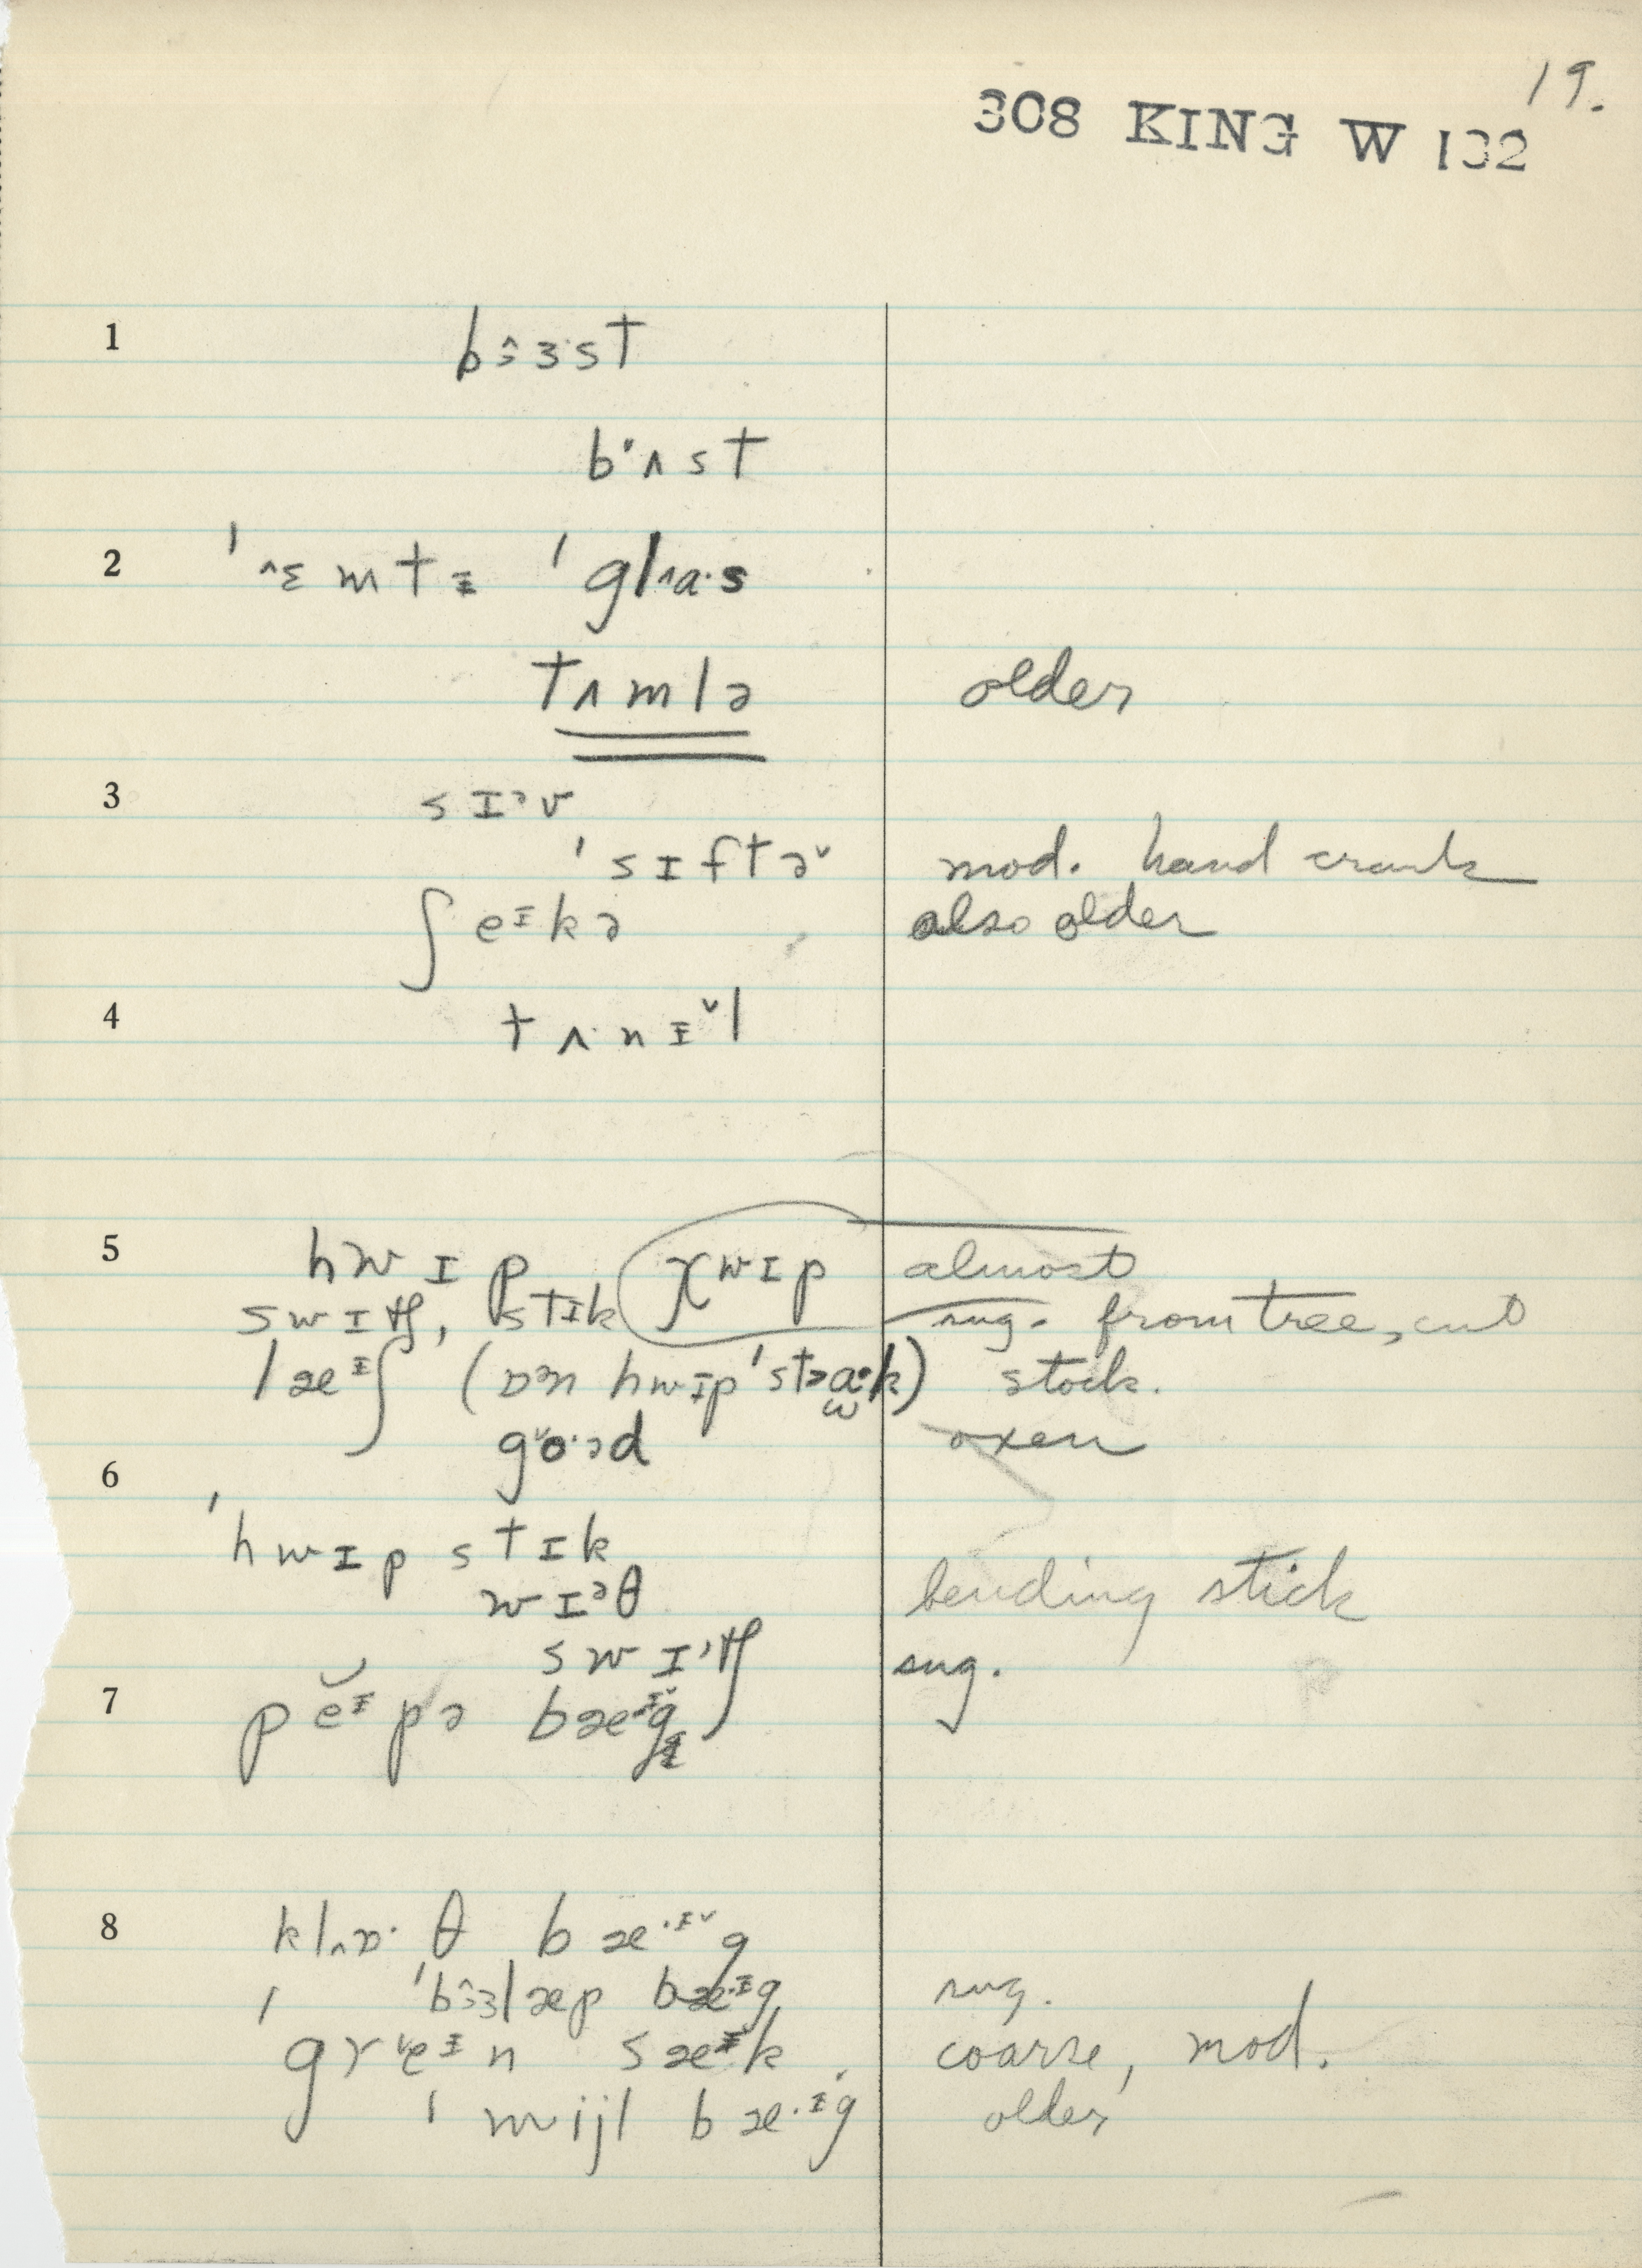 19.
308 KING W 132
1 bɜ̂ɜ·st
bʌst
2 'ɛ̂mtɪ 'glʌa·s
tʌmlə older
3 sɪᵊv
'sɪftə˅ mod. hand crank
ʃeᴵkə also older
4 tʌ·nɪ˅l
5 hwɪp χwɪp almost
swɪtʃ, stɪk sug. from tree, cut
læᴵʃ (ɒᵊn hwɪp 'stɒɑ·k) stock.
go·əd oxen
6
'hwɪp stɪk
wɪᵊθ bending stick
swɪᵊtʃ sug.
7 pĕᴵpə bæᴵg
8 klʌɒ·θ bæ·ᴵ˅g
'bɜ̂ɜlæp bæ·ᴵg sug.
'greᴵn sæᴵk coarse, mod.
'mijl bæ·ᴵg older